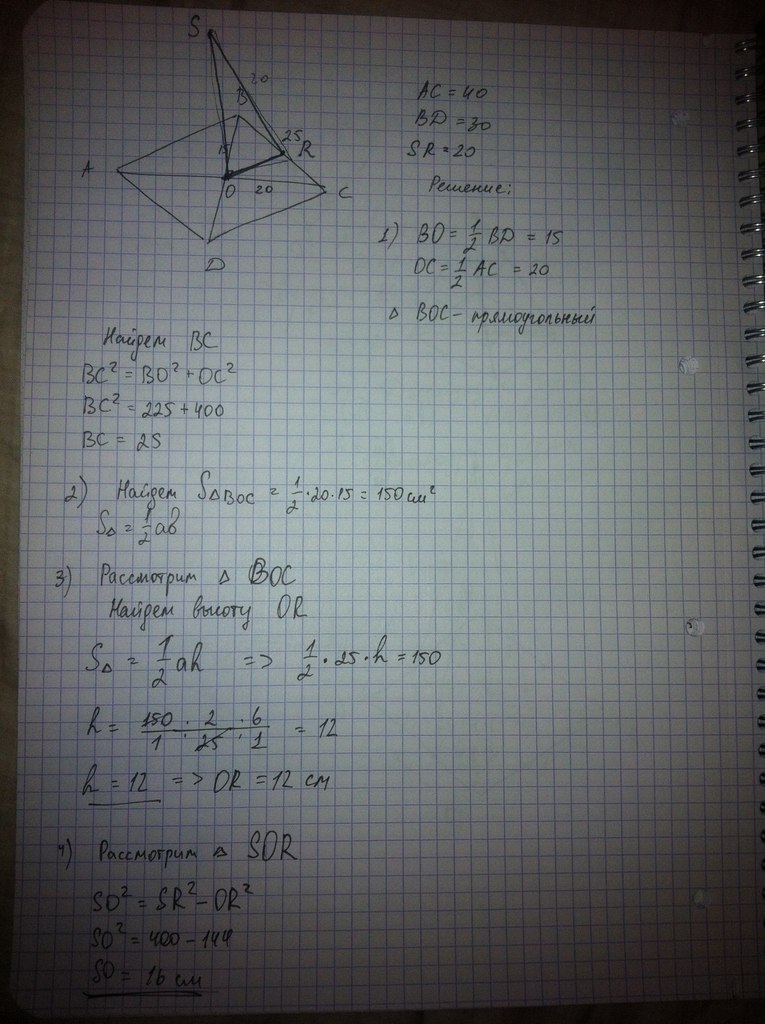 S
20
B
15
25
R
A
O
20
C
D
AC = 40
BD = 30
SR = 20
Решение:
1) BO = 1/2 BD = 15
OC = 1/2 AC = 20
△ BOC - прямоугольный
Найдем BC
BC² = BO² + OC²
BC² = 225 + 400
BC = 25
2) Найдем S△BOC = 1/2 · 20 · 15 = 150 см²
S△ = 1/2 ab
3) Рассмотрим △ BOC
Найдем высоту OR
S△ = 1/2 ah => 1/2 · 25 · h = 150
h = 150 · 2 · 6 / 1 · 25 · 1 = 12
h = 12 => OR = 12 см
4) Рассмотрим △ SOR
SO² = SR² - OR²
SO² = 400 - 144
SO = 16 см